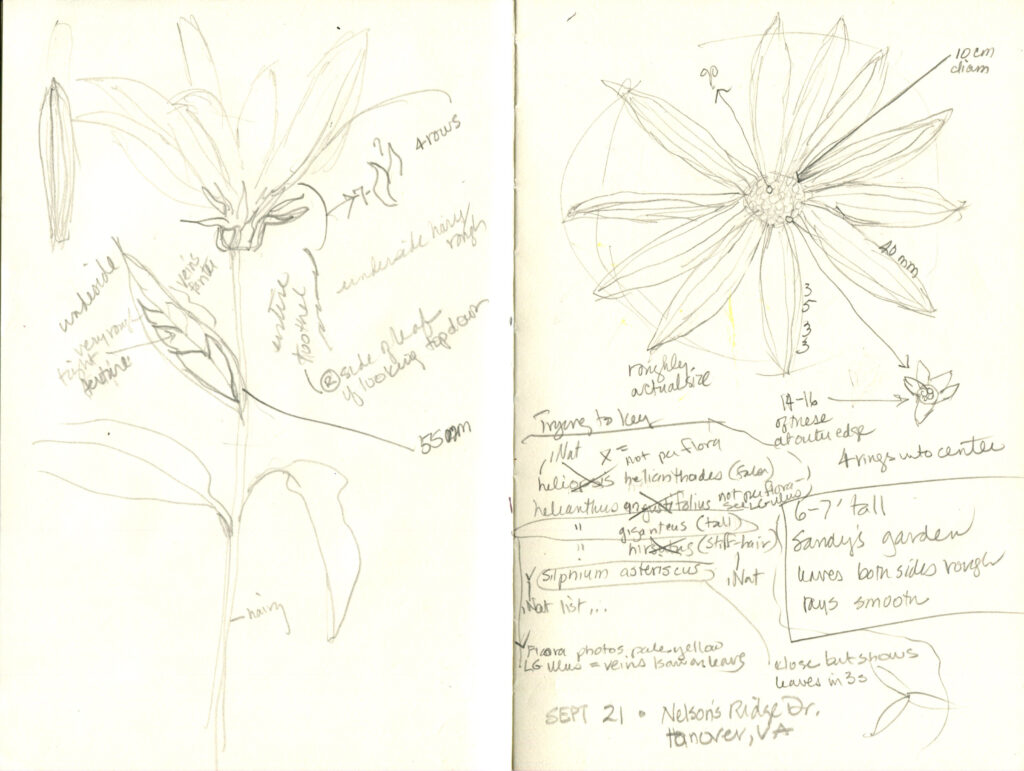 4 rows
7-
?
underside hairy
rough
underside
veins
very rough
entire
toothed
(R) side of leaf
if looking top down
55mm
hairy
10 cm
diam
go
40 mm
3
5
3
3
roughly
actual size
14-16
of these
at outer edge
4 rings into center
Trying to key
iNat X = not per flora
heliopsis helianthoides (false)
helianthus angustifolius not per flora
" giganteus (tall)
" hirsutus (stiff-hair)
Silphium asteriscus
iNat
iNat list...
6-7' tall
Sandy's garden
leaves both sides rough
rays smooth
Flora photos pale yellow
LG illus = veins
close but shows
leaves in 3s
SEPT 21 • Nelson's Ridge Dr.
Hanover, VA